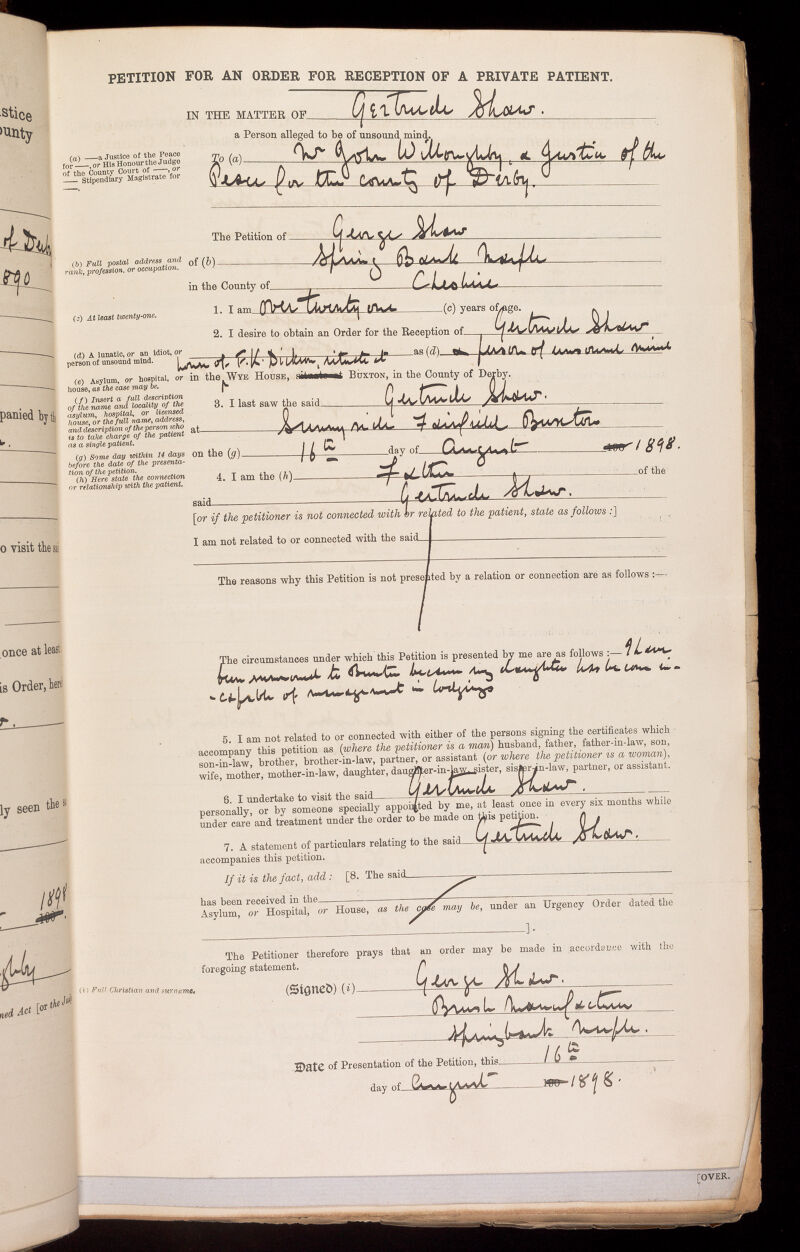 stice
ounty
of Derb
890
panied by th
r.
o visit the sai
once at least
is Order, here
r.
ly seen the s
1898
189 .
ghby
ned Act [or the Jud
PETITION FOR AN ORDER FOR RECEPTION OF A PRIVATE PATIENT.
IN THE MATTER OF Gertrude Shaw.
a Person alleged to be of unsound mind.
(a) —a Justice of the Peace
for —, or His Honour the Judge
of the County Court of —, or
— Stipendiary Magistrate for
—.
To (a) Mr John Willoughby, a Justice of the
Peace for the county of Derby.
The Petition of George Shaw
(b) Full postal address and
rank, profession, or occupation.
of (b) Spring Bank Marple
in the County of Cheshire
(c) At least twenty-one.
1. I am over twenty one (c) years of age.
2. I desire to obtain an Order for the Reception of Gertrude Shaw
(d) A lunatic, or an idiot, or
person of unsound mind.
as (d) a person of unsound mind
house of F. K. Dickson, situate at
(e) Asylum, or hospital, or
house, as the case may be.
in the WYE HOUSE, situate at BUXTON, in the County of Derby.
(f) Insert a full description
of the name and locality of the
asylum, hospital, or licensed
house, or the full name, address,
and description of the person who
is to take charge of the patient
as a single patient.
3. I last saw the said Gertrude Shaw.
at Sunny side Fairfield Buxton
(g) Some day within 14 days
before the date of the presenta-
tion of the petition.
on the (g) 16th day of August 189 1898.
(h) Here state the connection
or relationship with the patient.
4. I am the (h) Father of the
said Gertrude Shaw.
[or if the petitioner is not connected with or related to the patient, state as follows :]
I am not related to or connected with the said
The reasons why this Petition is not presented by a relation or connection are as follows :—
The circumstances under which this Petition is presented by me are as follows :— I have
been summoned to Buxton because my daughter has become in-
-capable of management in lodgings
5. I am not related to or connected with either of the persons signing the certificates which
accompany this petition as (where the petitioner is a man) husband, father, father-in-law, son,
son-in-law, brother, brother-in-law, partner, or assistant (or where the petitioner is a woman),
wife, mother, mother-in-law, daughter, daughter-in-law, sister, sister-in-law, partner, or assistant.
6. I undertake to visit the said Gertrude Shaw.
personally, or by someone specially appointed by me, at least once in every six months while
under care and treatment under the order to be made on this petition.
7. A statement of particulars relating to the said Gertrude Shaw.
accompanies this petition.
If it is the fact, add : [8. The said
has been received in the
Asylum, or Hospital, or House, as the case may be, under an Urgency Order dated the
].
The Petitioner therefore prays that an order may be made in accordance with the
foregoing statement.
(i) Full Christian and surname.
(Signed) (i) George Shaw.
Brush Manufacturer
Springbank Marple.
Date of Presentation of the Petition, this 16th
day of August 189 1898.
[OVER.